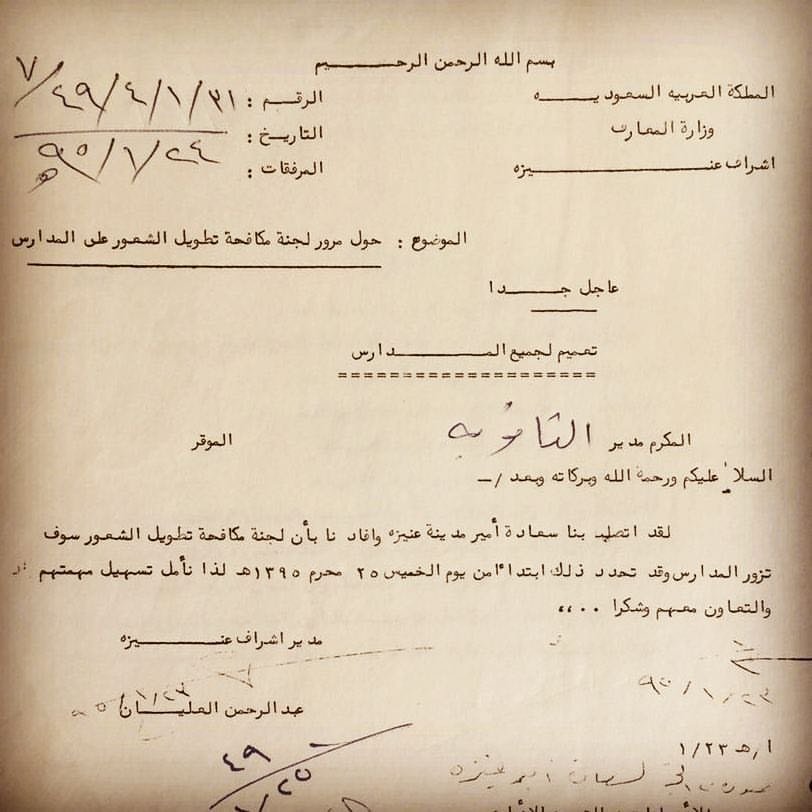 بسم الله الرحمن الرحيم
المملكة العربيه السعوديه
وزارة المعارف
اشراف عنيزه
الرقم : ٤٩/٤/١/٣١/٧
التاريخ : ٩٥/١/٢٤هـ
المرفقات :
الموضوع : حول مرور لجنة مكافحة تطويل الشعور على المدارس
عاجل جدا
تعميم لجميع المدارس
المكرم مدير الثانويه الموقر
السلام عليكم ورحمة الله وبركاته وبعد /-
لقد اتصل بنا سعادة أمير مدينة عنيزه وافادنا بأن لجنة مكافحة تطويل الشعور سوف
تزور المدارس وقد تحدد ذلك ابتداءا من يوم الخميس ٢٥ محرم ١٣٩٥هـ لذا نأمل تسهيل مهمتهم
والتعاون معهم وشكرا ..،،
مدير اشراف عنيزه
٩٥/١/٢٣
عبدالرحمن العليان
٩٥/١/٢٣
ا.هـ ١/٢٣
٤٩
٢٥
صورة الى لسعادة امير عنيزه